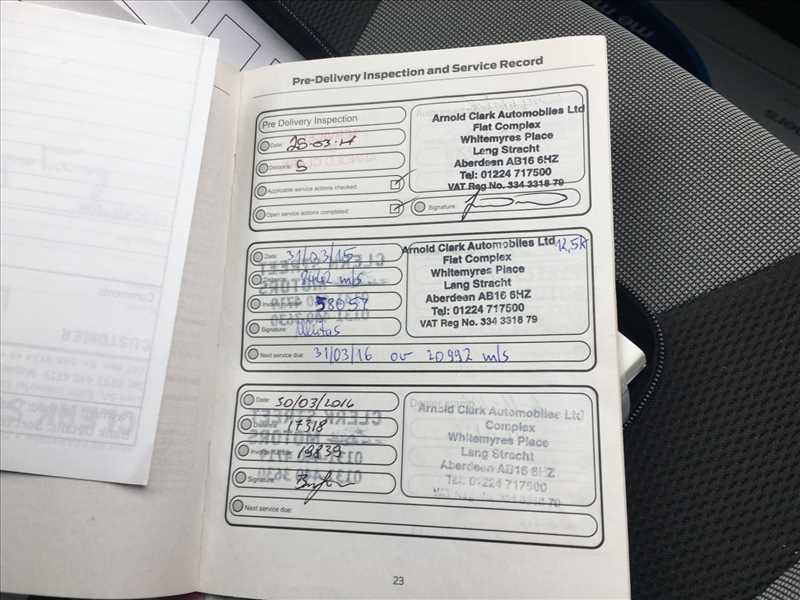 Pre-Delivery Inspection and Service Record
Pre Delivery Inspection
Date: 28-03-14
Distance: 5
Applicable service actions checked:
Open service actions completed:
Arnold Clark Automobiles Ltd
Fiat Complex
Whitemyres Place
Lang Stracht
Aberdeen AB16 6HZ
Tel: 01224 717500
VAT Reg No. 334 3318 79
Signature:
Date: 31/03/15
8442 m/s
58057
Signature:
Next service due: 31/03/16 or 20992 m/s
Arnold Clark Automobiles Ltd 12,5K
Fiat Complex
Whitemyres Place
Lang Stracht
Aberdeen AB16 6HZ
Tel: 01224 717500
VAT Reg No. 334 3318 79
Date: 30/03/2016
Distance: 17318
19839
Signature:
Next service due:
Arnold Clark Automobiles Ltd
Complex
Whitemyres Place
Lang Stracht
Aberdeen AB16 6HZ
Tel: 01224 717500
23